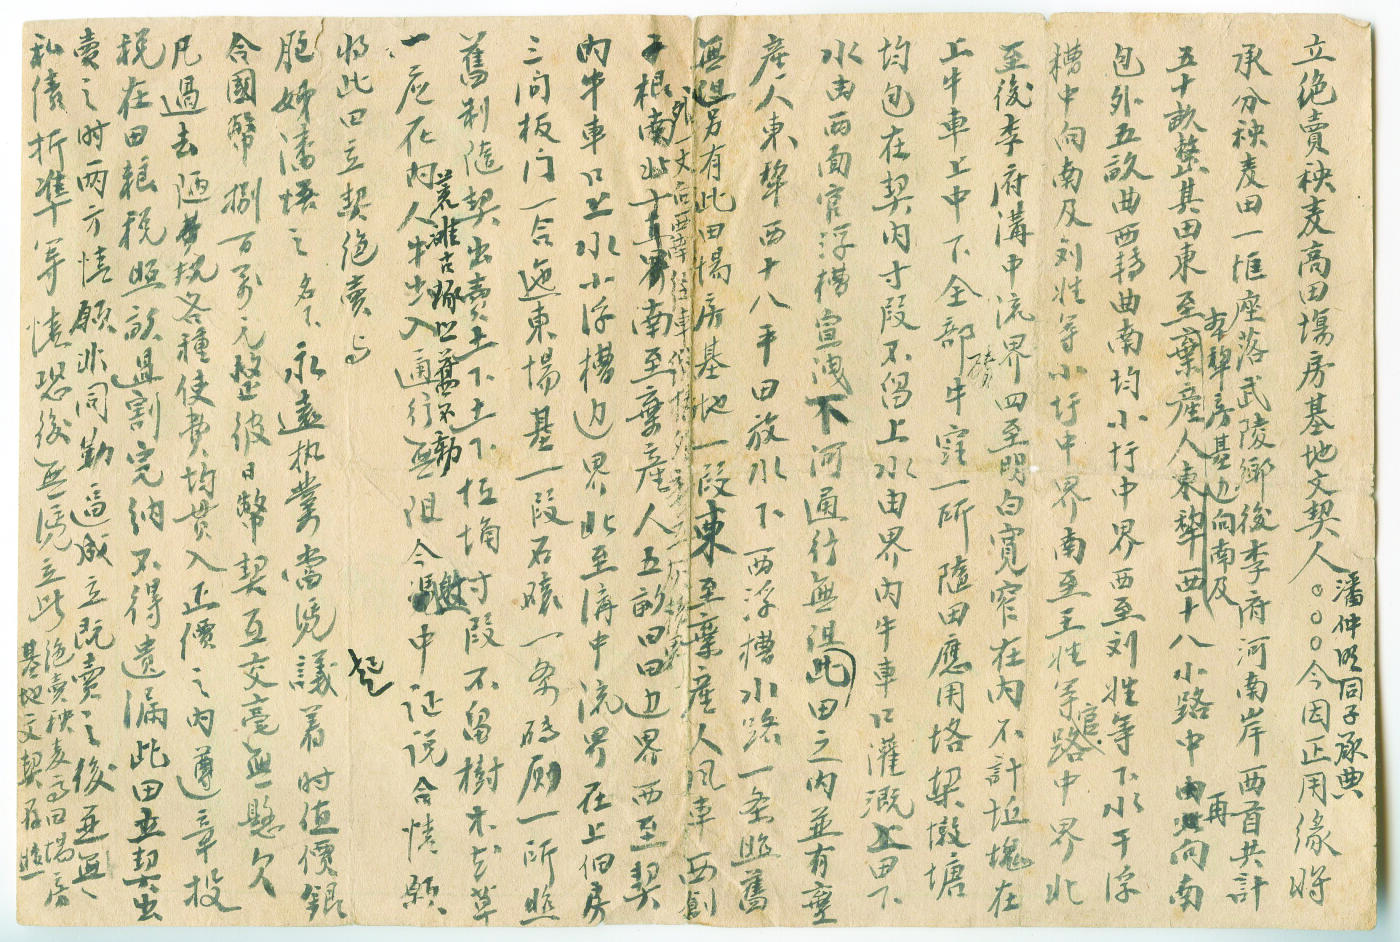 立絕賣秧麦高田塲房基地文契人
潘仲明同子承典
。。。今因正用緣將
承分秧麦田一恇座落武陵鄉後李府河南岸西首共計
五十畝整其田東至棄產人東犂西十八小路中由北向南
左犂房基边向南及
再
包外五畝曲西轉曲南均小圩中界西至刘姓等下水干浮
槽中向南及刘姓等小圩中界南至王姓等路中界北
官
至後李府溝中流界四至明白寬窄在内不計坵塊在
上牛車上中下全部牛窪一所隨田應用垎㮮墩塘
均包在契内寸段不留上水由界内牛車口灌溉上田下
水由西面官浮槽宣洩下河通行無阻此田之内並有棄
產人東犂西十八平田放水下西浮槽水路一条照舊
無阻另有此田場房基地一段東至棄產人风車西創
子根南北十弓界南至棄產人五畝田田边界西至契
内牛車口上水小浮槽边界北至溝中流界在上佃房
三间板门一合迤東場基一段石磙一条磚厠一所照
舊制隨契出賣土下土下恒埆寸段不留樹木花草
一应在内人牛出入通行無阻今憑中证説合情願
將此田立契绝賣与
胞姊潘悟之名下永遠执業當凭議着時值價銀
合國幣捌百万元整彼日幣契互交毫無懸欠
凡過去陋費税各種使費均貫入正價之内遵章投
税在田粮税照畝過割完纳不得遗漏此田立契出
賣之时两方情願非同勤逼成立既賣之後並無
私債折準等情恐後無凭立此
绝賣秧麦高田場房
基地文契存照